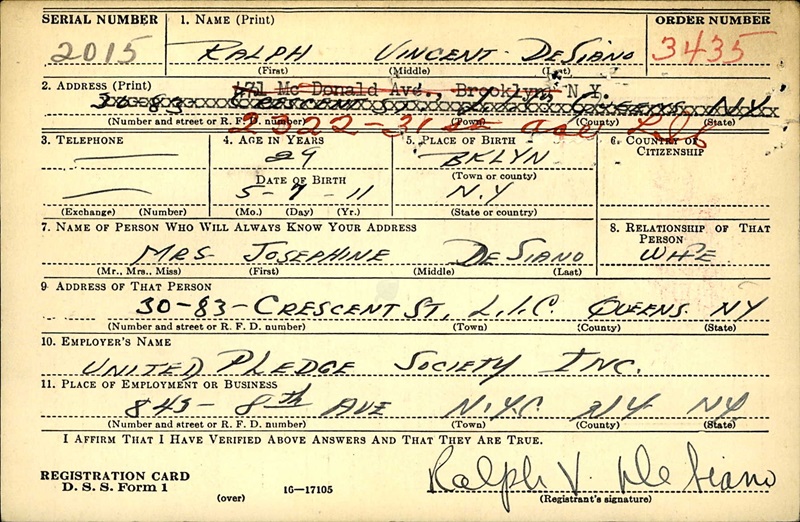 SERIAL NUMBER 1. NAME (Print) ORDER NUMBER
2015 RALPH VINCENT DESIANO 3435
(First) (Middle) (Last)
2. ADDRESS (Print) 171 McDonald Ave., Brooklyn, N.Y.
30-83 CRESCENT ST QUEENS N.Y.
(Number and street or R. F. D. number) (Town) (County) (State)
2322-31 st ave
3. TELEPHONE 4. AGE IN YEARS 5. PLACE OF BIRTH 6. COUNTRY OF CITIZENSHIP
29 BKLYN
DATE OF BIRTH (Town or county)
5-7-11 N.Y
(Exchange) (Number) (Mo.) (Day) (Yr.) (State or country)
7. NAME OF PERSON WHO WILL ALWAYS KNOW YOUR ADDRESS 8. RELATIONSHIP OF THAT PERSON
MRS JOSEPHINE DESIANO WIFE
(Mr., Mrs., Miss) (First) (Middle) (Last)
9 ADDRESS OF THAT PERSON
30-83-CRESCENT ST, L.I.C. QUEENS NY
(Number and street or R. F. D. number) (Town) (County) (State)
10. EMPLOYER'S NAME
UNITED PLEDGE SOCIETY INC.
11. PLACE OF EMPLOYMENT OR BUSINESS
845- 8th AVE N.Y.C NY NY
(Number and street or R. F. D. number) (Town) (County) (State)
I AFFIRM THAT I HAVE VERIFIED ABOVE ANSWERS AND THAT THEY ARE TRUE.
REGISTRATION CARD
D. S. S. Form 1 Ralph V. De Siano
(over) 16-17105 (Registrant's signature)